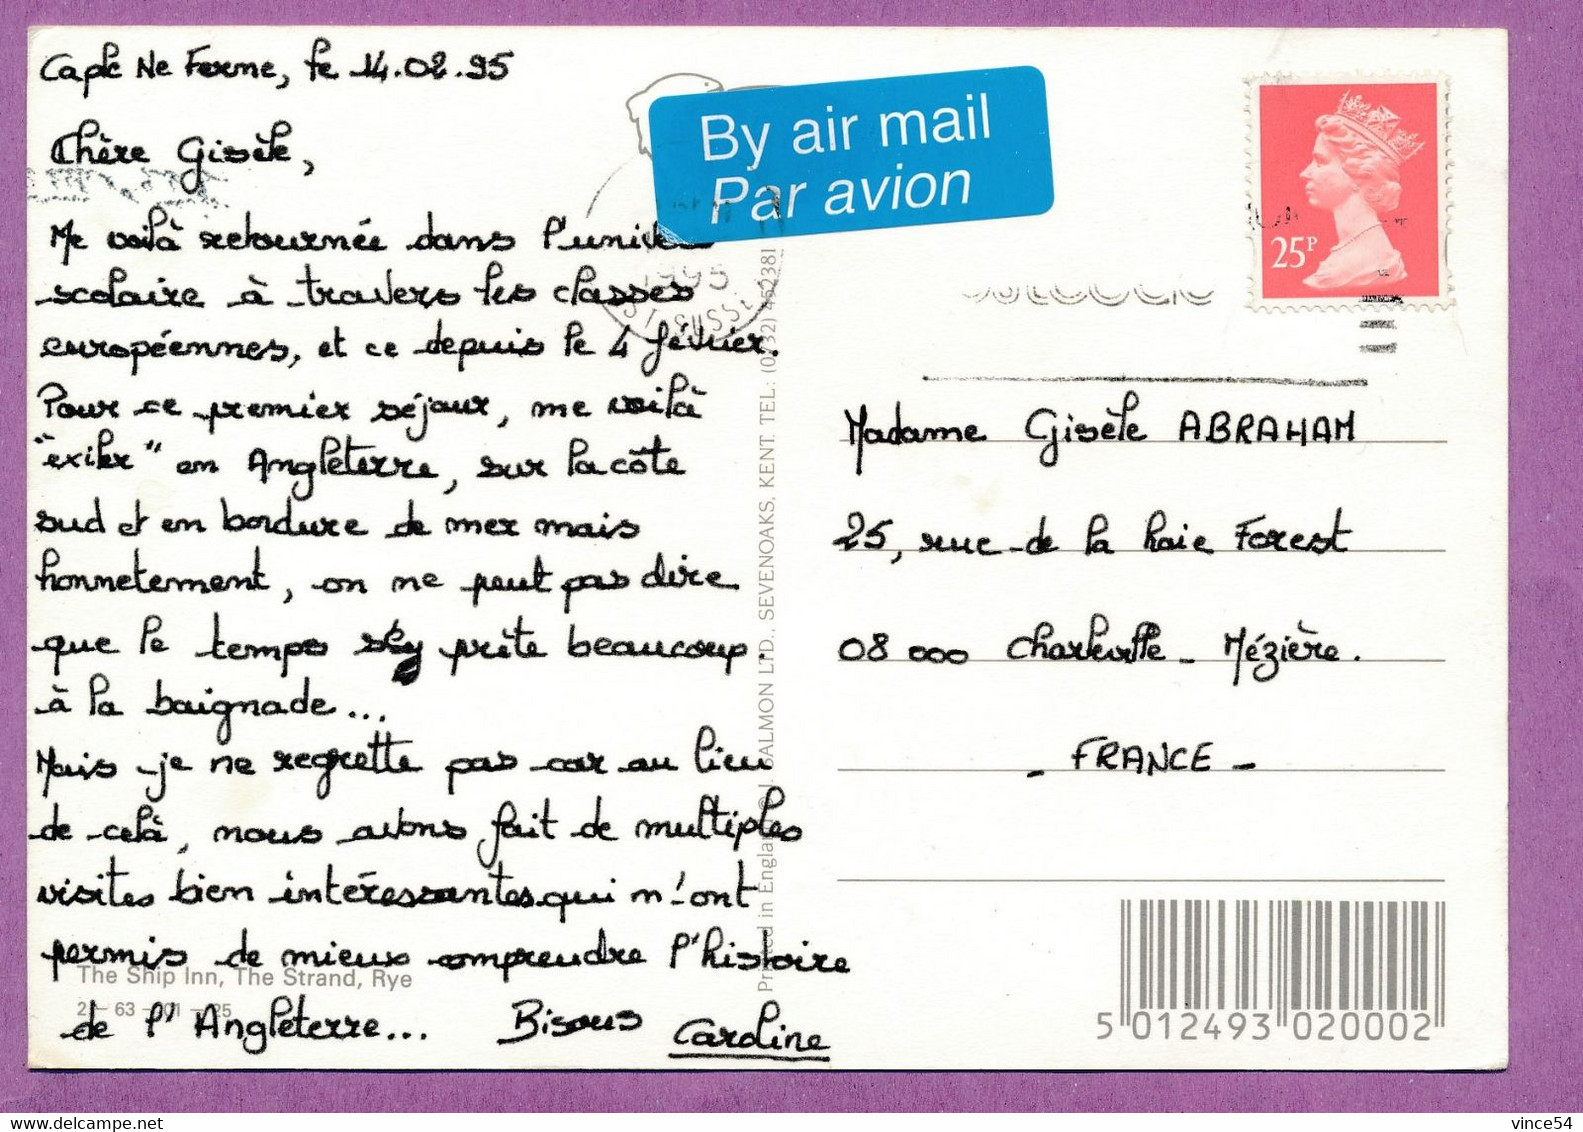 Caple Ne Ferme, le 14.02.95
Chère Gisèle,
Me voilà retournée dans l'univers
scolaire à travers les classes
européennes, et ce depuis le 4 février.
Pour ce premier séjour, me voilà
"exiler" en Angleterre, sur la côte
sud et en bordure de mer mais
honnetement, on ne peut pas dire
que le temps s'y prête beaucoup
à la baignade...
Mais je ne regrette pas car au lieu
de celà, nous avons fait de multiples
visites bien intéressantes qui m'ont
permis de mieux comprendre l'histoire
de l'Angleterre... Bisous Caroline
The Ship Inn, The Strand, Rye
2-63-01-25
By air mail
Par avion
1995
ST SUSSE
Printed in England © J. SALMON LTD., SEVENOAKS, KENT. TEL: (0732) 452381
25P
Madame Gisèle ABRAHAM
25, rue de la haie Forest
08 000 Charleville - Mézière.
- FRANCE -
5 012493 020002
vince54